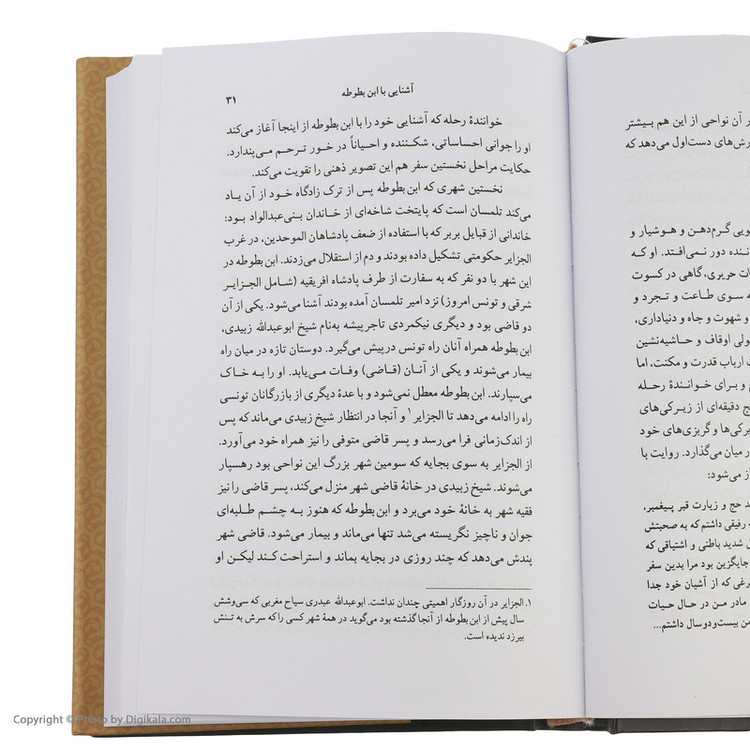 آشنایی با ابن بطوطه
۳۱
خوانندهٔ رحله که آشنایی خود را با ابن بطوطه از اینجا آغاز می‌کند
او را جوانی احساساتی، شکننده و احیاناً در خور ترحم می‌پندارد.
حکایت مراحل نخستین سفر هم این تصویر ذهنی را تقویت می‌کند.
نخستین شهری که ابن بطوطه پس از ترک زادگاه خود از آن یاد
می‌کند تلمسان است که پایتخت شاخه‌ای از خاندان بنی‌عبدالواد بود:
خاندانی از قبایل بربر که با استفاده از ضعف پادشاهان الموحدین، در غرب
الجزایر حکومتی تشکیل داده بودند و دم از استقلال می‌زدند. ابن بطوطه در
این شهر با دو نفر که به سفارت از طرف پادشاه افریقیه (شامل الجزایر
شرقی و تونس امروز) نزد امیر تلمسان آمده بودند آشنا می‌شود. یکی از آن
دو قاضی بود و دیگری نیکمردی تاجرپیشه به‌نام شیخ ابوعبدالله زبیدی،
ابن بطوطه همراه آنان راه تونس درپیش می‌گیرد. دوستان تازه در میان راه
بیمار می‌شوند و یکی از آنان (قاضی) وفات می‌یابد. او را به خاک
می‌سپارند. ابن بطوطه معطل نمی‌شود و با عدهٔ دیگری از بازرگانان تونسی
راه را ادامه می‌دهد تا الجزایر۱ و آنجا در انتظار شیخ زبیدی می‌ماند که پس
از اندک‌زمانی فرا می‌رسد و پسر قاضی متوفی را نیز همراه خود می‌آورد.
از الجزایر به سوی بجایه که سومین شهر بزرگ این نواحی بود رهسپار
می‌شوند. شیخ زبیدی در خانهٔ قاضی شهر منزل می‌کند، پسر قاضی را نیز
فقیه شهر به خانهٔ خود می‌برد و ابن بطوطه که هنوز به چشم طلبه‌ای
جوان و ناچیز نگریسته می‌شد تنها می‌ماند و بیمار می‌شود. قاضی شهر
پندش می‌دهد که چند روزی در بجایه بماند و استراحت کند لیکن او
۱. الجزایر در آن روزگار اهمیتی چندان نداشت. ابوعبدالله عبدری سیاح مغربی که سی‌وشش
سال پیش از ابن بطوطه از آنجا گذشته بود می‌گوید در همهٔ شهر کسی را که سرش به تنش
بیرزد ندیده است.
ر آن نواحی از این هم بیشتر
رش‌های دست‌اول می‌دهد که
ویی گرم‌دهن و هوشیار و
ننده دور نمی‌افتد. او که
ات حریری، گاهی در کسوت
ه سوی طاعت و تجرد و
و شهوت و جاه و دنیاداری،
ولی اوقاف و حاشیه‌نشین
ت ارباب قدرت و مکنت، اما
ج و برای خوانندهٔ رحله
ج دقیقه‌ای از زیرکی‌های
یرکی‌ها و گربزی‌های خود
ر میان می‌گذارد. روایت با
از می‌شود:
د حج و زیارت قبر پیغمبر،
ه رفیقی داشتم که به صحبتش
ل شدید باطنی و اشتیاقی که
جایگزین بود مرا بدین سفر
رغی که از آشیان خود جدا
مادر من در حال حیات
من بیست‌ودوسال داشتم...
Copyright © Photo by Digikala.com